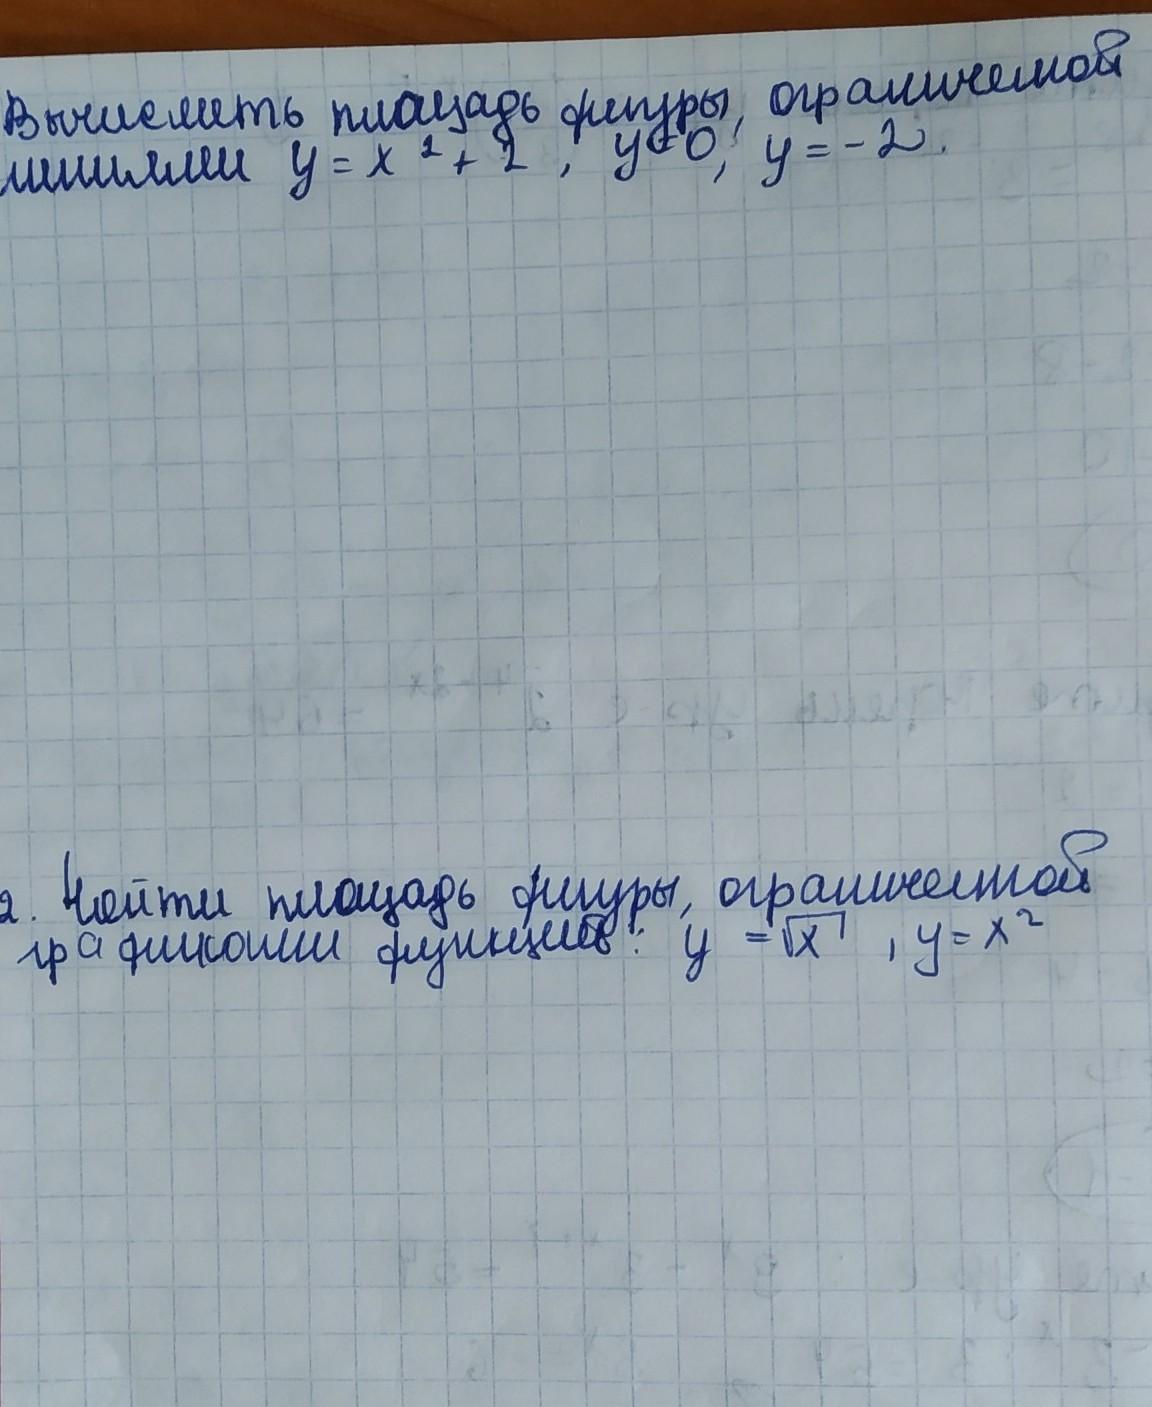 Вычислить площадь фигуры, ограниченной
линиями y = x² + 2 , y = 0, y = -2.
2. Найти площадь фигуры, ограниченной
графиками функций: y = √x , y = x²